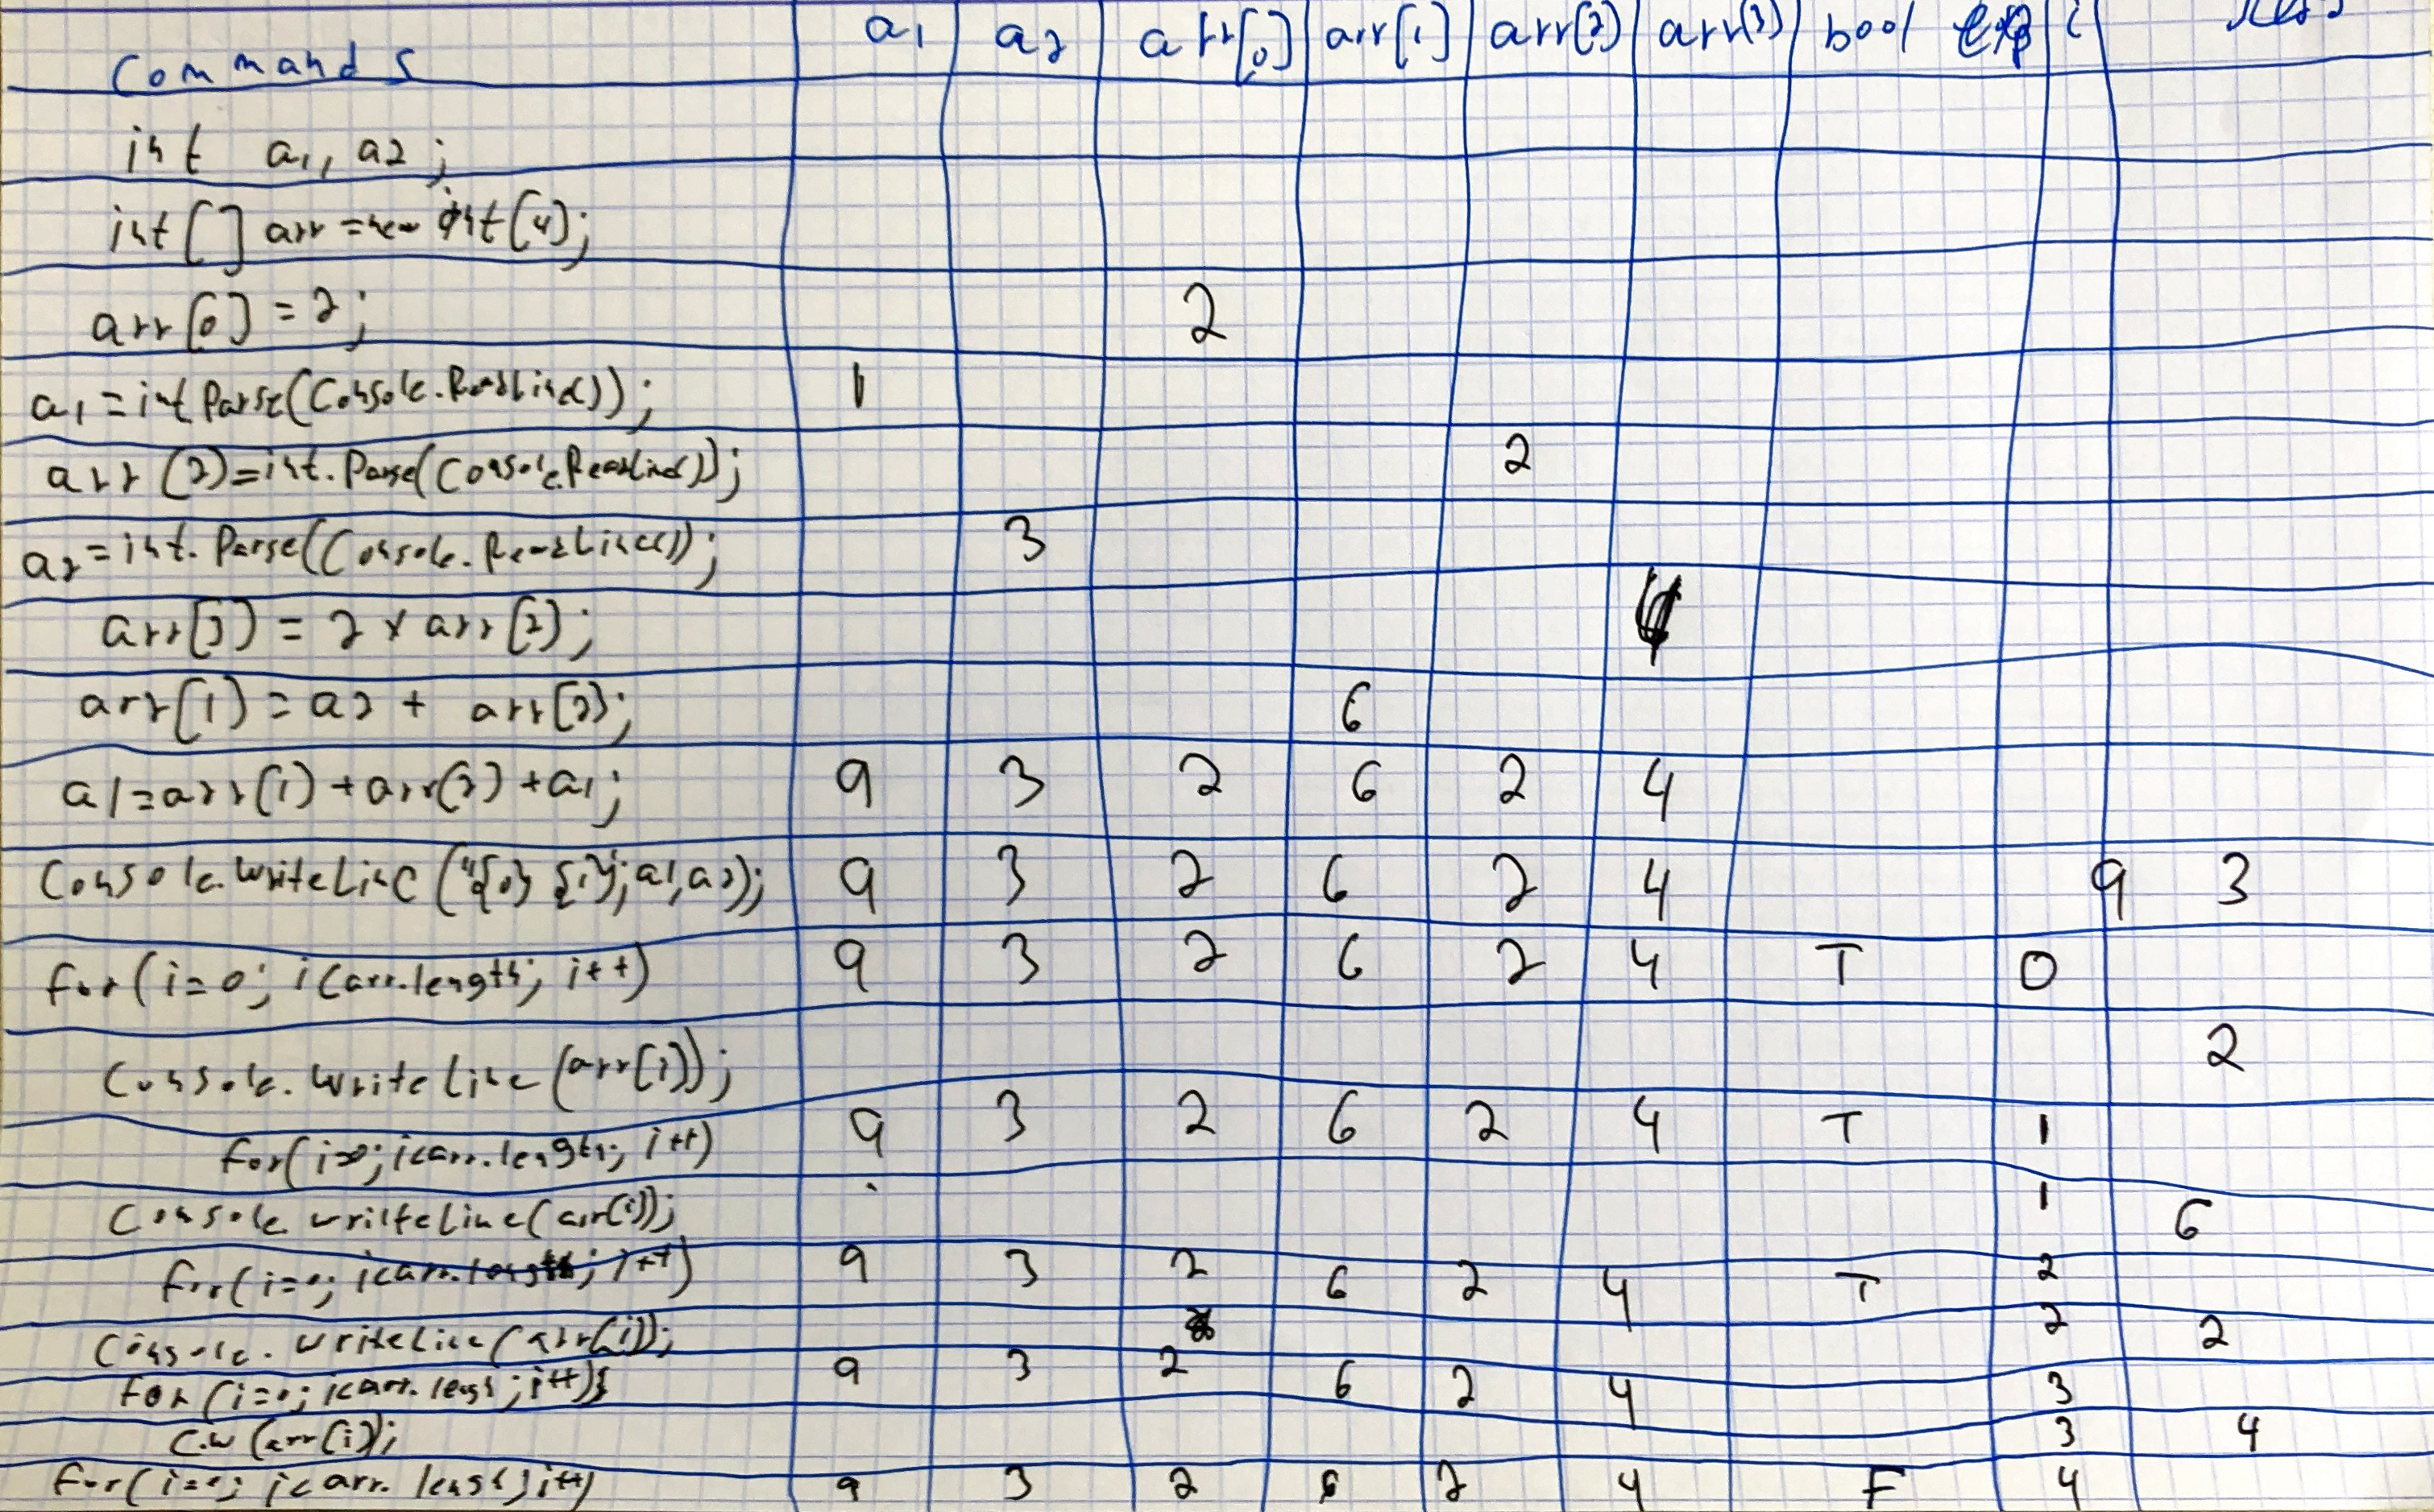 Commands a1 a2 arr[0] arr[1] arr[2] arr[3] bool exp i
int a1, a2;
int[] arr = new int[4];
arr[0] = 2; 2
a1 = int Parse(Console.ReadLine()); 1
arr[2] = int.Parse(Console.ReadLine()); 2
a2 = int.Parse(Console.ReadLine()); 3
arr[3] = 2 x arr[2];
arr[1] = a2 + arr[3]; 6
a1 = arr[1] + arr[2] + a1; 9 3 2 6 2 4
Console.WriteLine("{0} {1}", a1, a2); 9 3 2 6 2 4 9 3
for(i=0; i<arr.length; i++) 9 3 2 6 2 4 T 0
Console.WriteLine(arr[i]); 2
for(i=0; i<arr.length; i++) 9 3 2 6 2 4 T 1
Console writeline(arr[i]); 1 6
for(i=0; i<arr.length; i++) 9 3 2 6 2 4 T 2
Console.WriteLine(arr[i]); 2 2
for(i=0; i<arr.lengt; i++){ 9 3 2 6 2 4 3
C.W(arr[i]); 3 4
for(i=0; i<arr.lengt; i++) 9 3 2 6 2 4 F 4